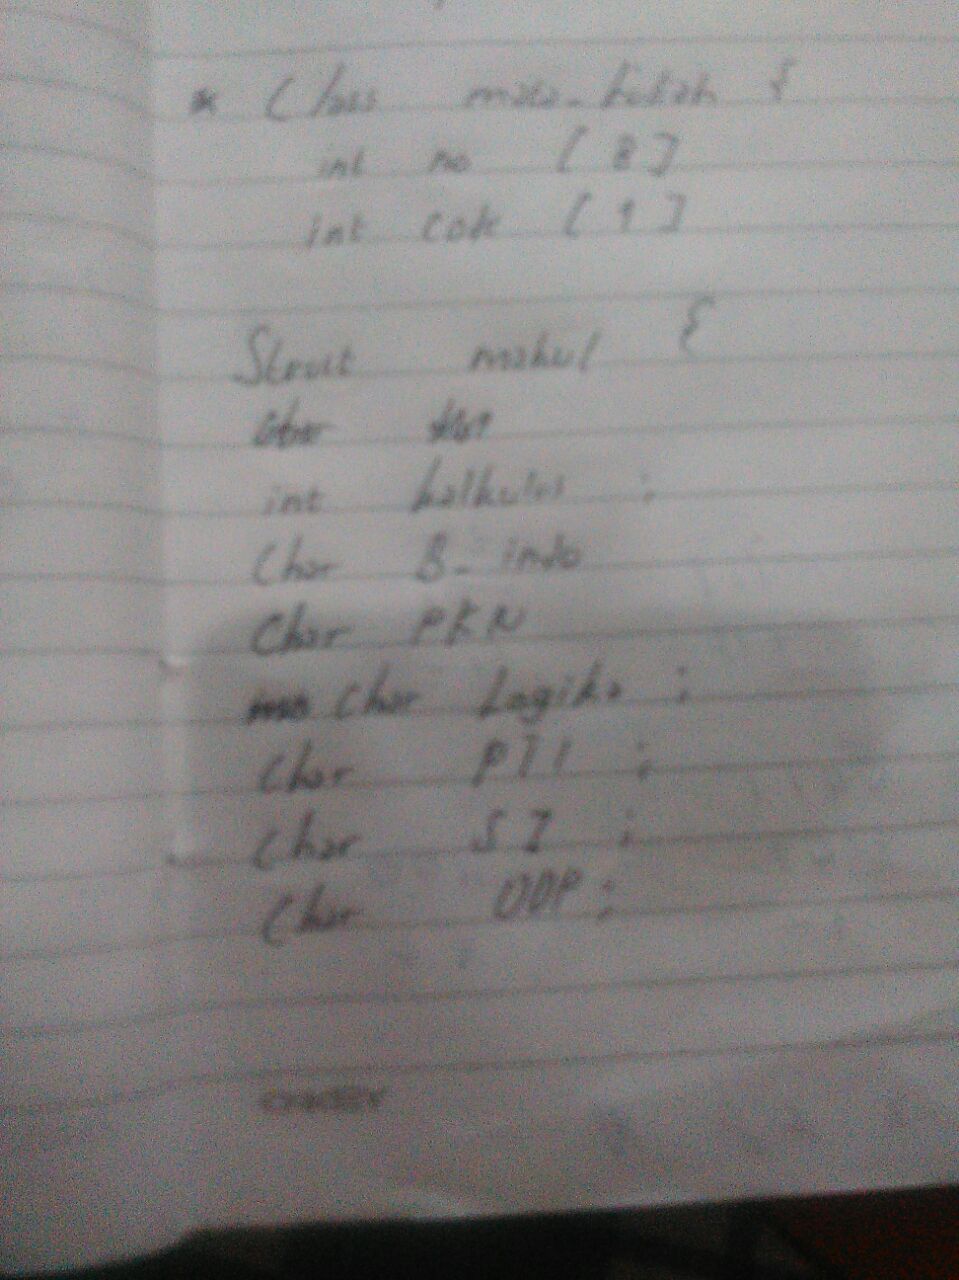 * Class mata_kuliah {
int no [ 8 ]
int code [ 9 ]
Struct makul {
Char
int kalkulus ;
Char B_indo
Char PKN
Char Logika ;
Char PTI ;
Char SI ;
Char OOP ;